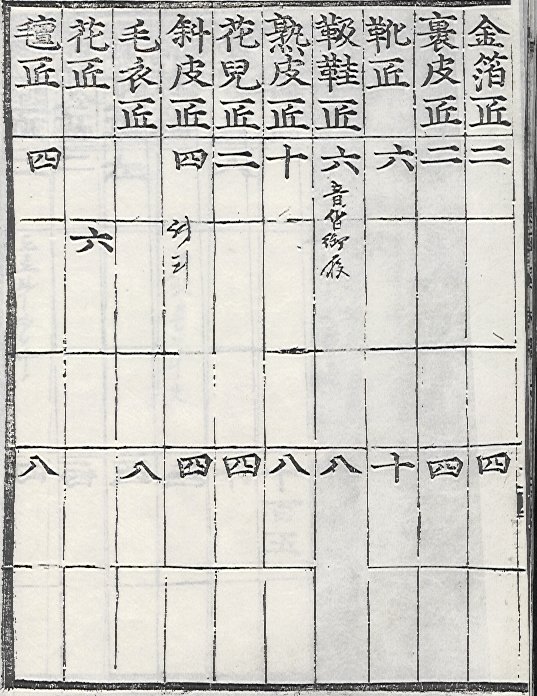 金箔匠 二 四
裹皮匠 二 四
靴匠 六 十
靸鞋匠 六 八
熟皮匠 十 八
花兒匠 二 四
斜皮匠 四 四
毛衣匠 八
花匠 六
氊匠 四 八